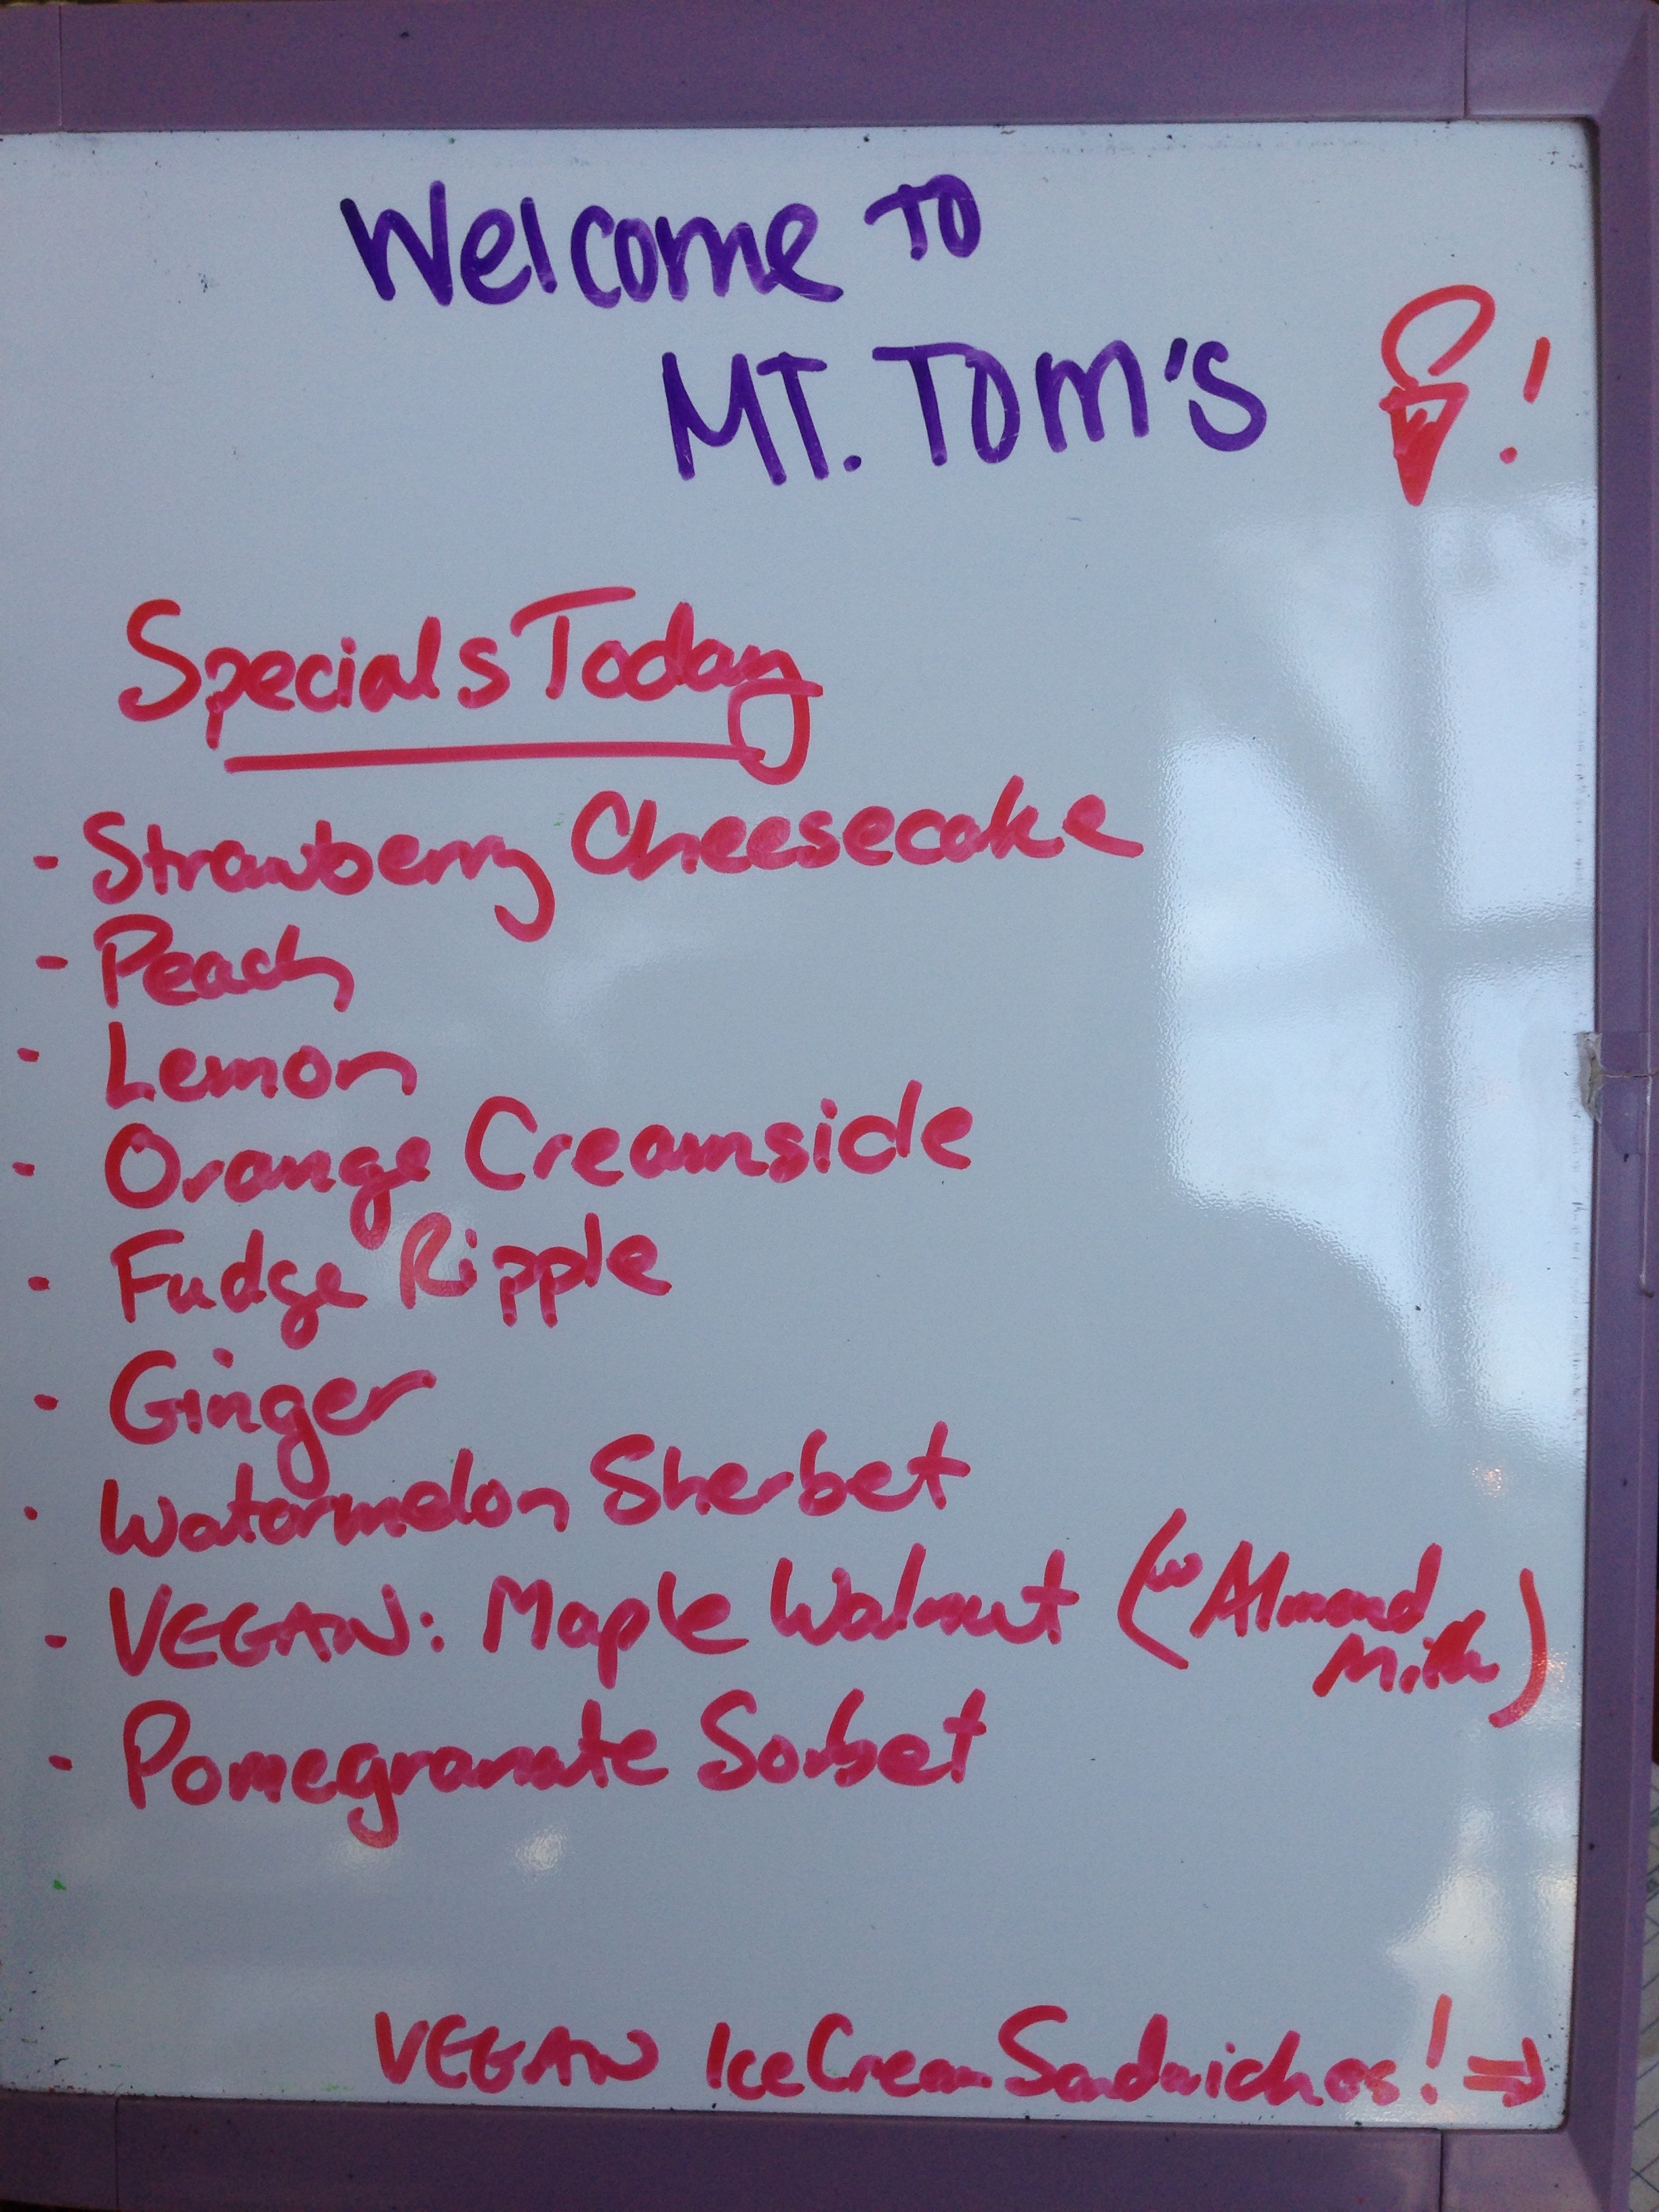 Welcome to
MT. TOM'S !
Specials Today
- Strawberry Cheesecake
- Peach
- Lemon
- Orange Creamside
- Fudge Ripple
- Ginger
- Watermelon Sherbet
- VEGAN: Maple Walnut (w Almond
Milk)
- Pomegranate Sorbet
VEGAN Ice Cream Sandwiches! ⇒